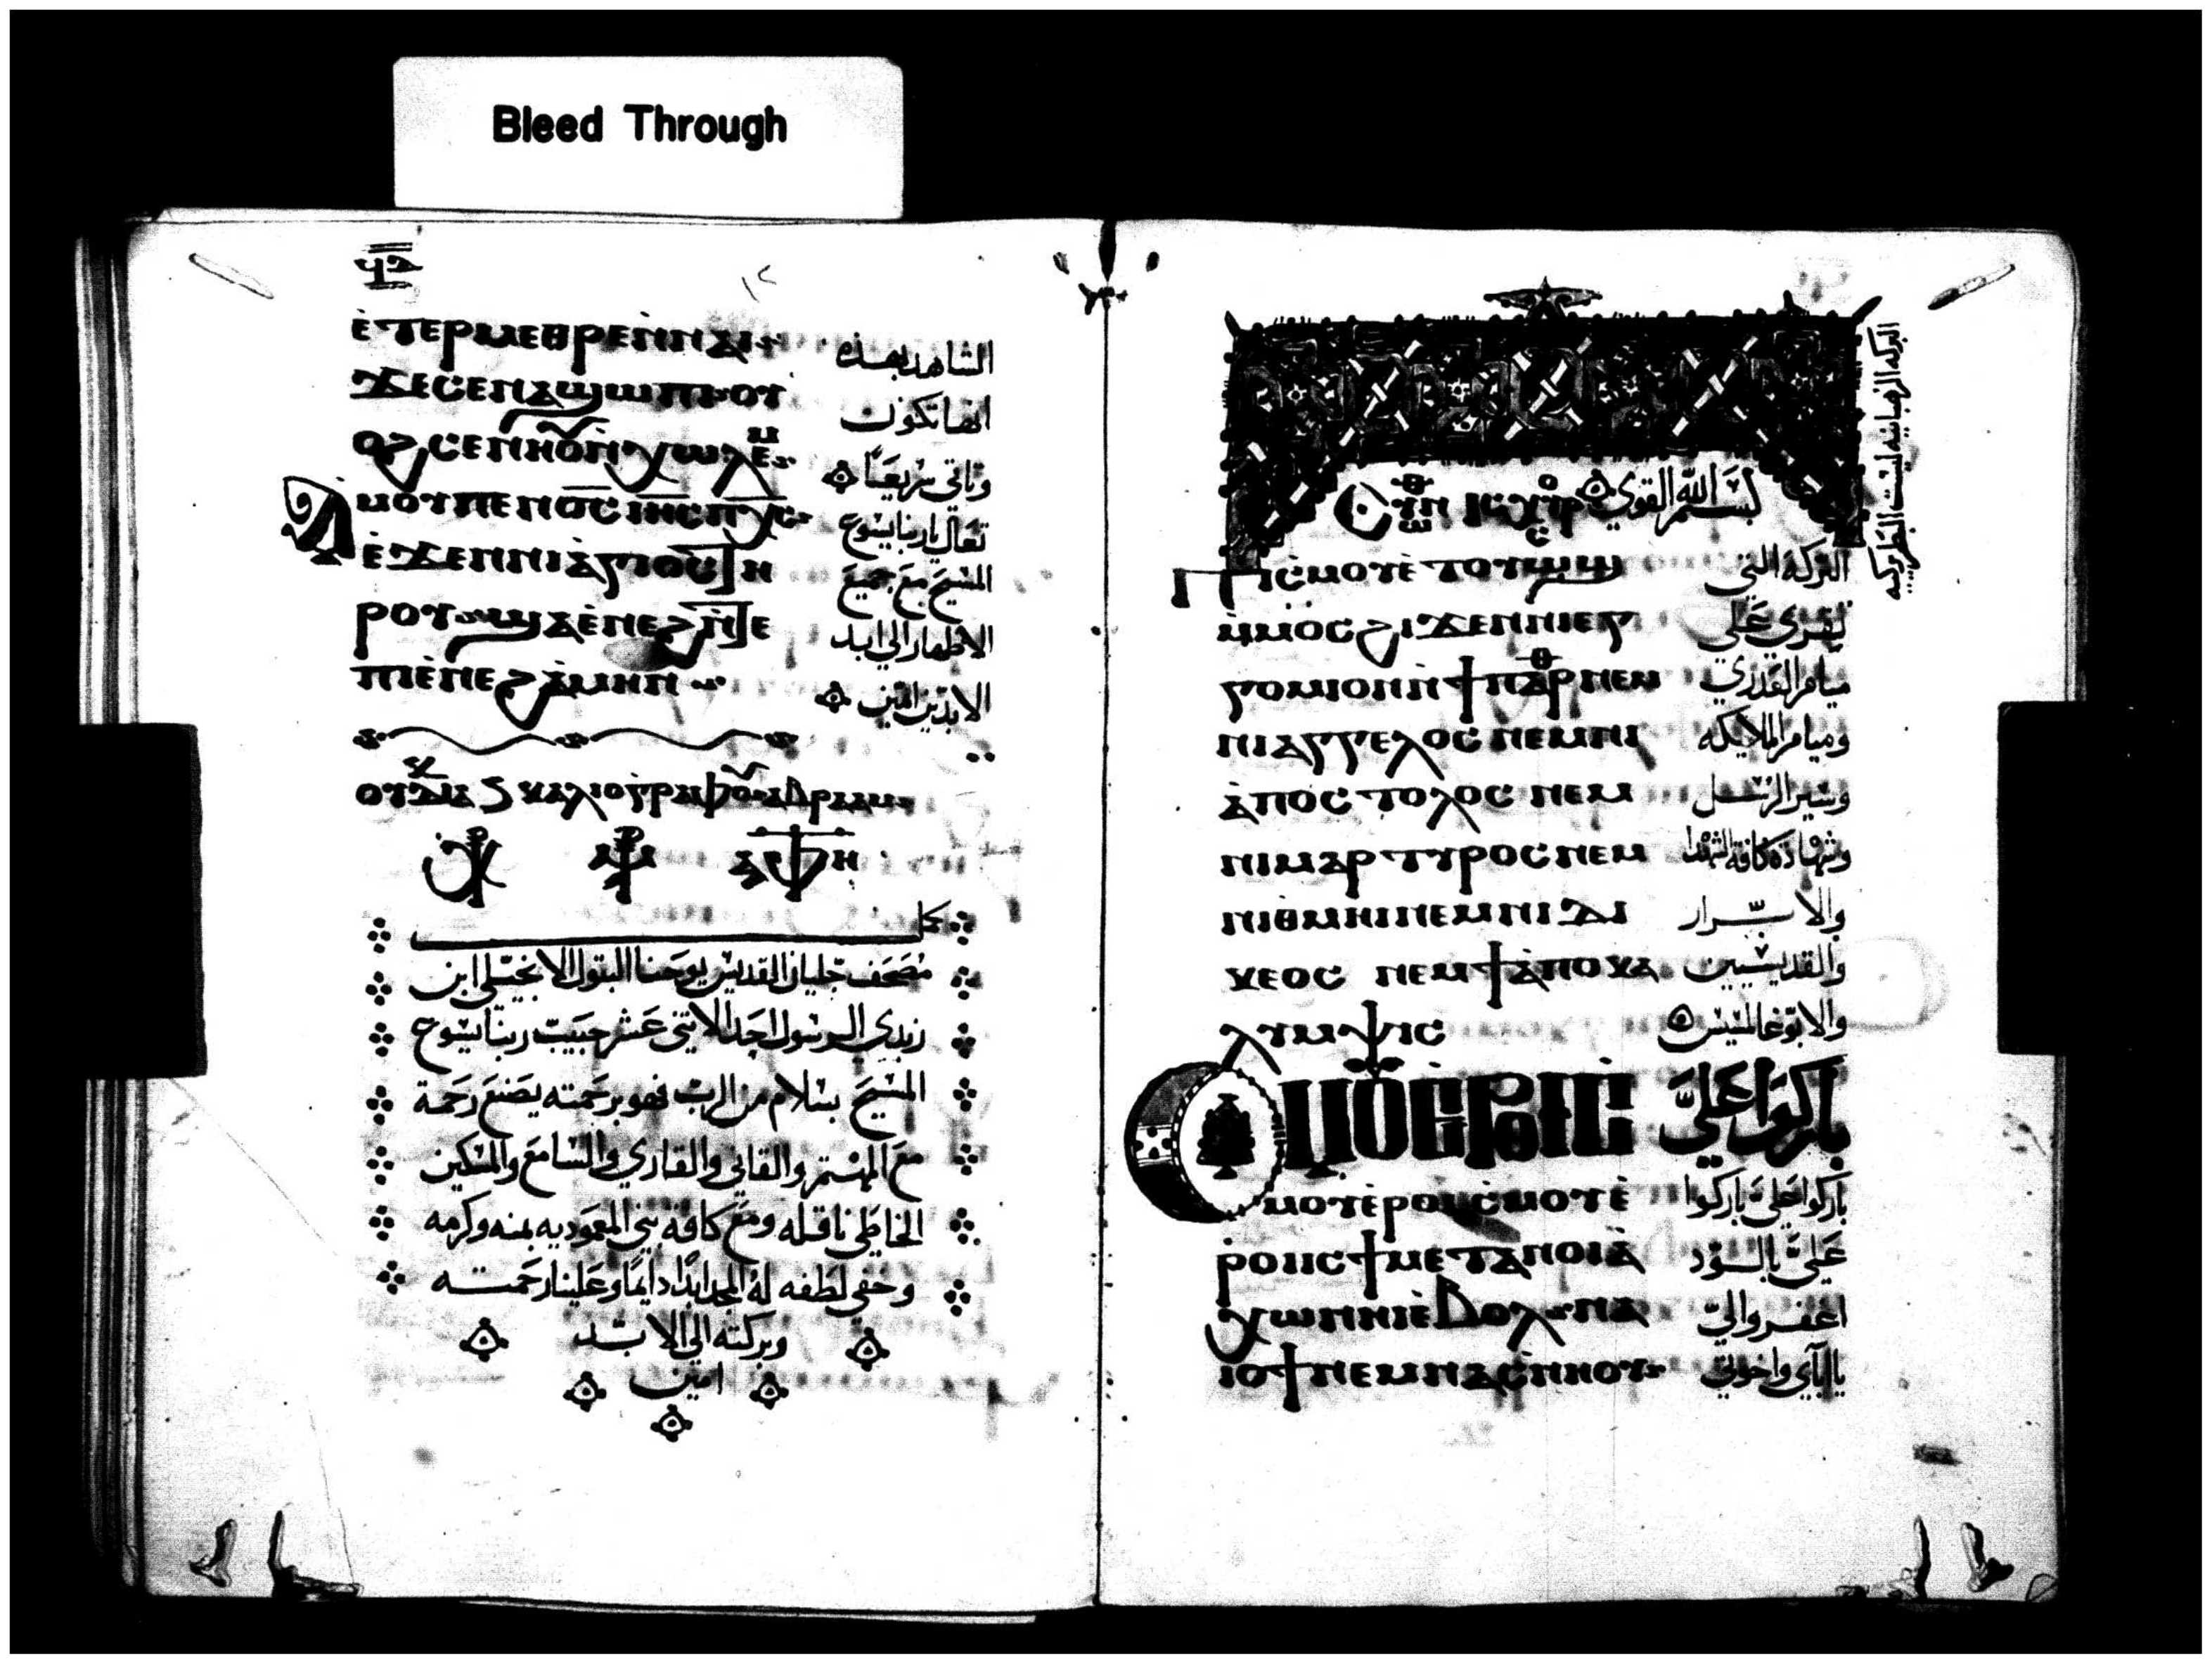 Bleed Through
ⲉⲧⲉⲣⲙⲉⲑⲣⲉⲛⲛⲁⲓ
الشاهد بهذه
ϫⲉⲥⲉⲛⲁϣⲱⲡⲓⲟⲩ
انها تكون
ⲟϩⲥⲉⲛⲏⲟⲩⲛⲭⲱⲗⲉⲙ
وتاتي سريعًا
ⲁⲙⲟⲩⲡⲉⲛⲟ̅ⲥ̅ⲓⲏ̅ⲥ̅ⲡⲭ̅ⲥ̅
تعال ياربنا يسوع
ⲉϫⲉⲛⲛⲓⲁⲅⲓⲟⲥⲧⲏ
المسيح مع جميع
ⲣⲟⲩϣⲁⲉⲛⲉϩⲛⲧⲉ
الاطهار الي ابد
ⲡⲓⲉⲛⲉϩⲁⲙⲏⲛ
الابدين امين
كمل
مصحف جليان القديس يوحنا البتول الانجيلي ابن
زبدي الرسول احد الاثني عشر حبيب ربنا يسوع
المسيح بسلام من الرب فهو برحمته يصنع رحمة
مع المهتم والقاني والقاري والسامع والمسكين
الخاطي ناقله ومع كافة بني المعموديه بمنه وكرمه
وخفي لطفه له المجد ابدًا دايمًا وعلينا رحمته
وبركته الي الابد
امين
البركه الرهبانيه لبست البطريركيه
بسم الله القوي
ⲡⲓⲥⲙⲟⲩⲉⲧⲟⲩⲱϣ
البركه التي
ⲙⲙⲟⲥϩⲓϫⲉⲛⲛⲓⲉⲅ
تقري علي
ⲅⲟⲙⲓⲟⲛⲛϯⲡⲁⲣⲑⲛⲉⲙ
ميامر العذري
ⲛⲓⲁⲅⲅⲉⲗⲟⲥⲛⲉⲙⲛⲓ
وميامر الملايكه
ⲁⲡⲟⲥⲧⲟⲗⲟⲥⲛⲉⲙ
وسير الرسل
ⲛⲓⲙⲁⲣⲧⲩⲣⲟⲥⲛⲉⲙ
وشهادة كافة الشهدا
ⲛⲓⲑⲙⲏⲓⲛⲉⲙⲛⲓⲇⲓ
والابرار
ⲕⲉⲟⲥ ⲛⲉⲙϯⲁⲡⲟⲕⲁ
والقديسيين
ⲗⲩⲙⲯⲓⲥ
والابوغالمسيس
ⲥⲙⲟⲩⲉⲣⲟⲓⲥ
باركوا عليَّ
ⲙⲟⲩⲉⲣⲟⲓⲥⲙⲟⲩⲉ
باركوا عليَّ باركوا
ⲣⲟⲓⲓⲥϯⲙⲉⲧⲁⲛⲟⲓⲁ
ⲭⲱⲛⲏⲓⲉⲃⲟⲗⲛⲁ
اغفروا لي
ⲓⲟϯⲛⲉⲙⲛⲁⲥⲛⲏⲟⲩ
يا اباي واخوتي